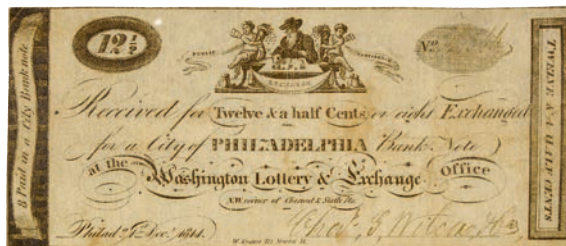 8 Paid in a City Bank note
12 1/2
EXCHANGE
No.
Received for Twelve & a half Cents or eight Exchanged
for a City of PHILADELPHIA Bank Note
at the Washington Lottery & Exchange Office
N.W. corner of Chesnut & Sixth Sts.
Philad. 1st Decr. 1814.
TWELVE & A HALF CENTS